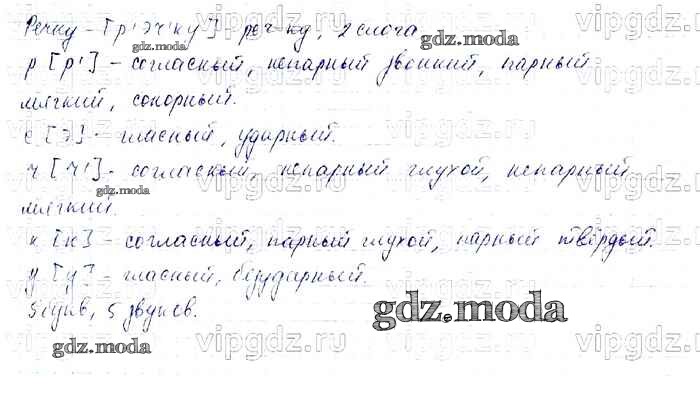 Речку - [р'эч'ку], реч-ку, 2 слога.
р [р'] - согласный, непарный звонкий, парный
мягкий, сонорный.
е [э] - гласный, ударный.
ч [ч'] - согласный, непарный глухой, непарный
мягкий.
к [к] - согласный, парный глухой, парный твёрдый.
у [у] - гласный, безударный.
5 букв, 5 звуков.
gdz.moda
gdz.moda
gdz.moda
gdz.moda
vipgdz.ru